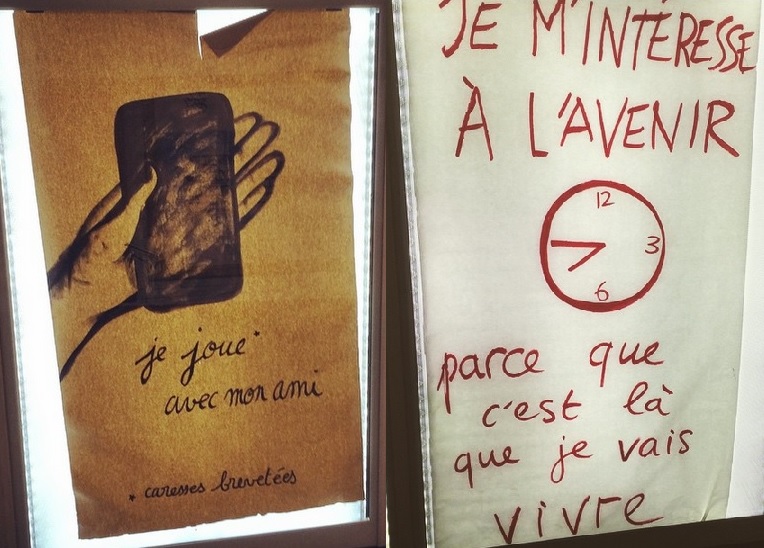 je joue*
avec mon ami
* caresses brevetées
JE M'INTÉRESSE
À L'AVENIR
12
3
6
parce que
c'est là
que je vais
vivre